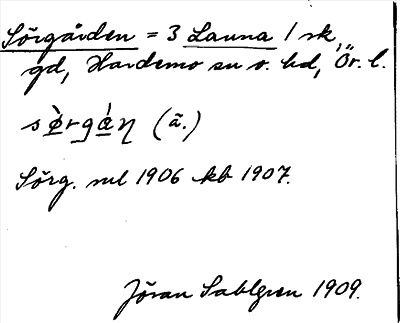 Sörgården = 3 Launa 1 sk
gd, Hardemo sn o. hd, Ör. l.
sö̀rgá̀ɳ (ã.)
Sörg. ml 1906 kb 1907.
Jöran Sahlgren 1909.